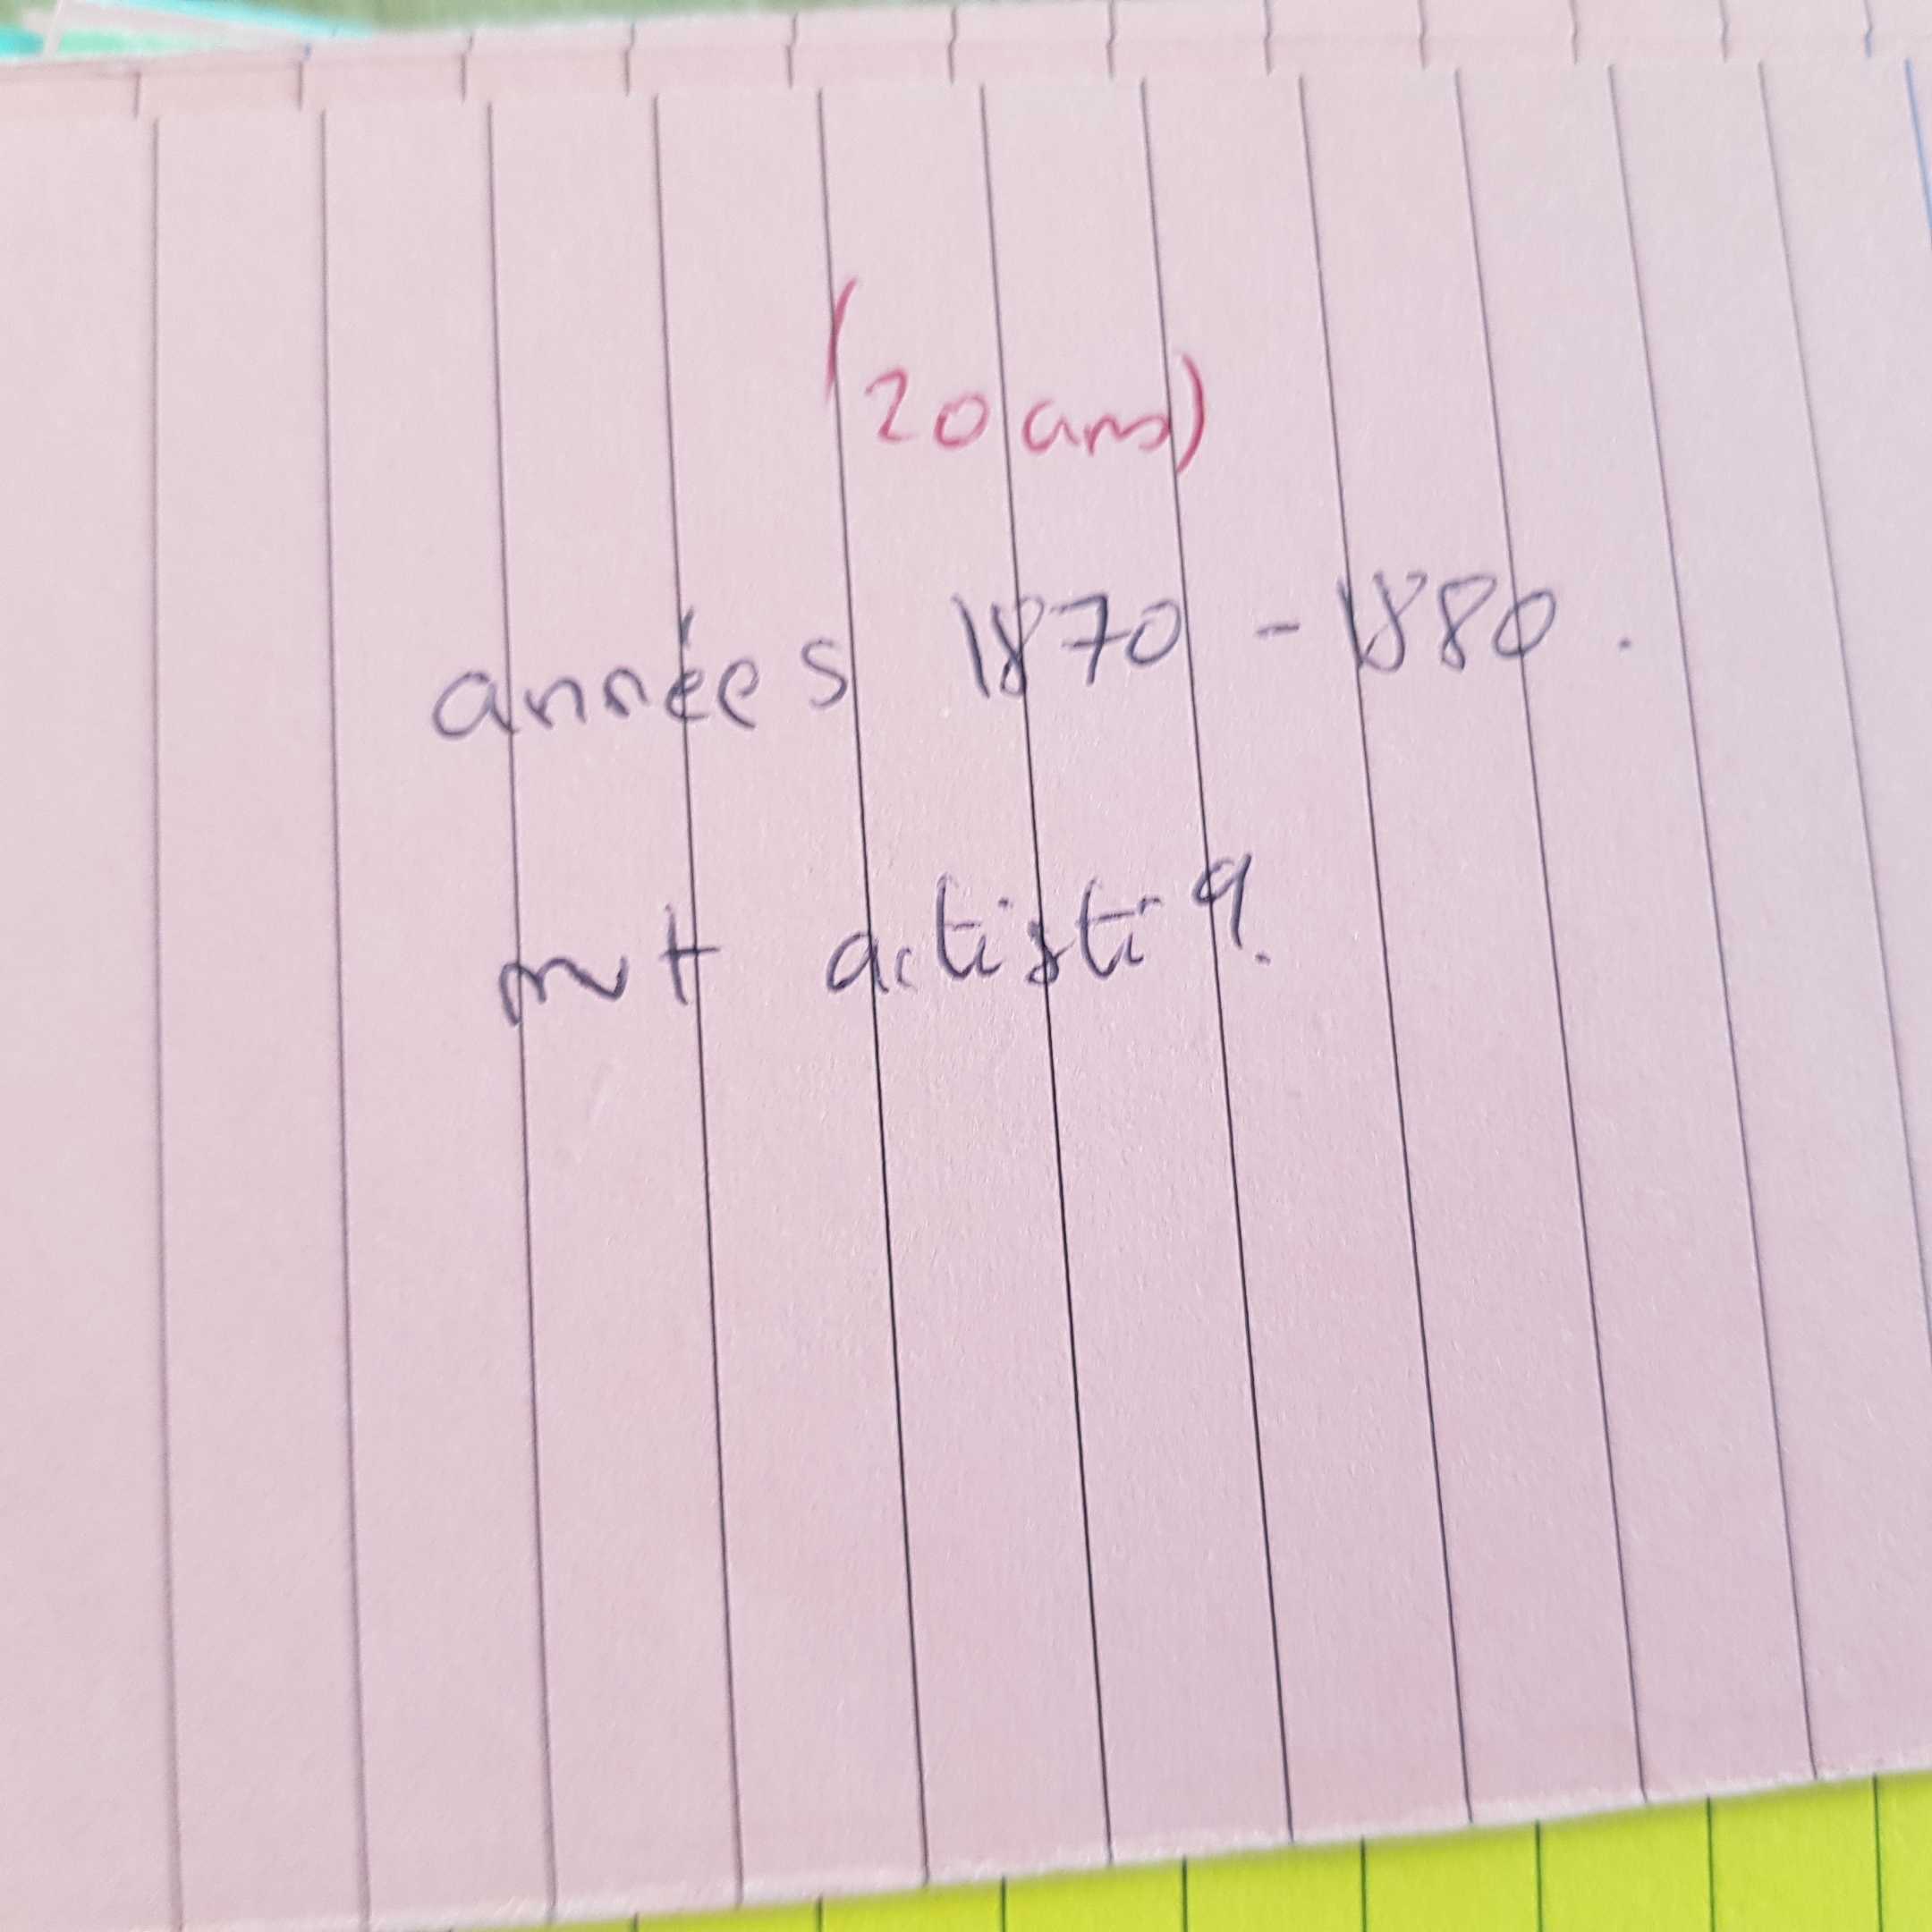 (20 ans)
années 1870 - 1880.
mvt artistiq.